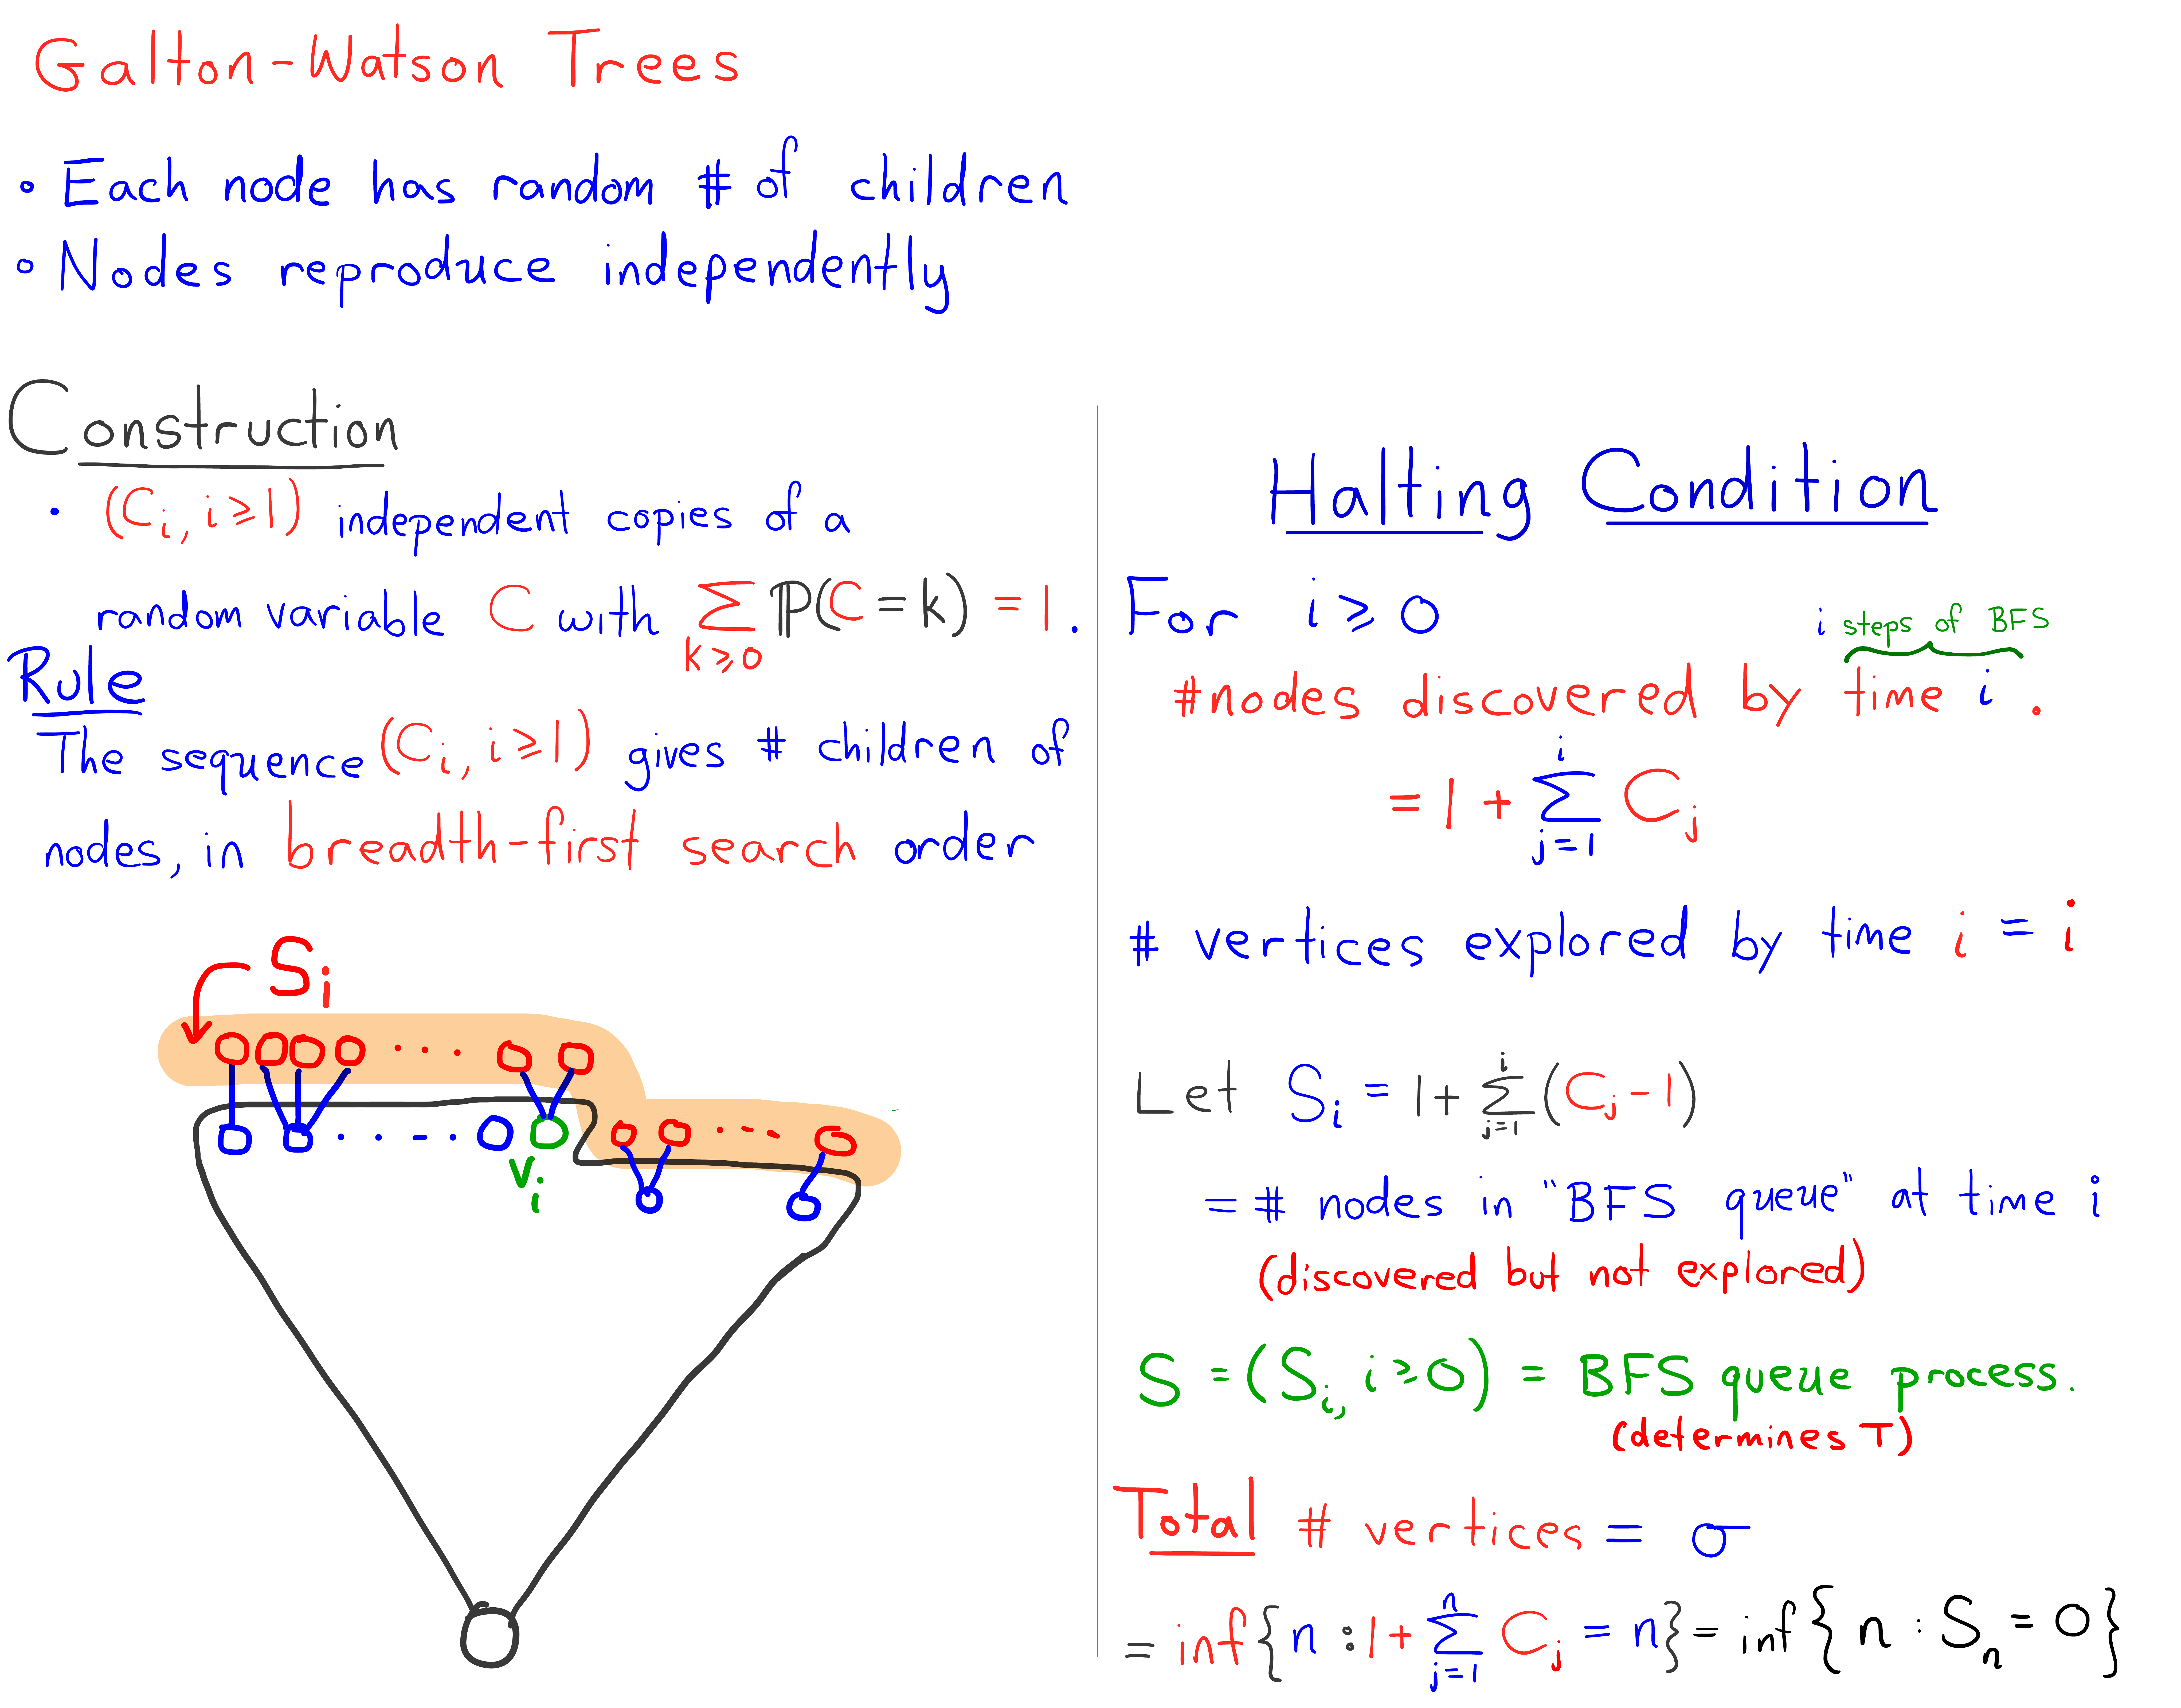 Galton-Watson Trees
• Each node has random # of children
• Nodes reproduce independently
Construction
• (C_i, i ≥ 1) independent copies of a
random variable C with ∑_{k≥0} ℙ(C = k) = 1.
Rule
The sequence (C_i, i ≥ 1) gives # children of
nodes, in breadth-first search order
S_i
v_i
Halting Condition
For i ≥ 0
i steps of BFS
#nodes discovered by time i.
= 1 + ∑_{j=1}^{i} C_j
# vertices explored by time i = i
Let S_i = 1 + ∑_{j=1}^{i} (C_j - 1)
= # nodes in "BFS queue" at time i
(discovered but not explored)
S = (S_i, i ≥ 0) = BFS queue process.
(determines T)
Total # vertices = σ
= inf{n : 1 + ∑_{j=1}^{n} C_j = n} = inf{n : S_n = 0}